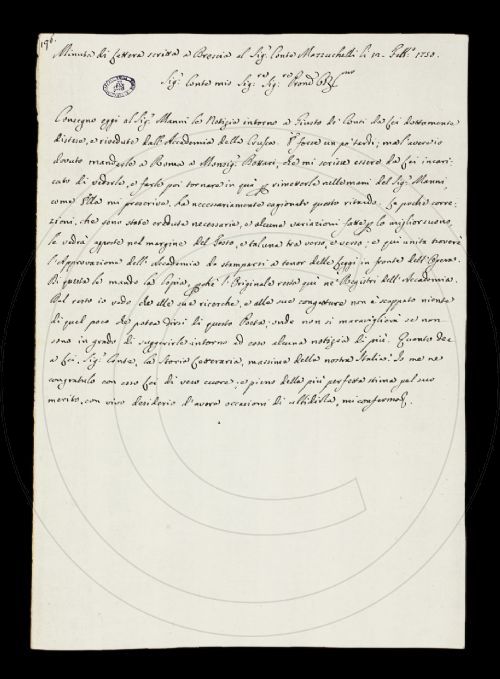 196.
Minuta di Lettera scritta a Brescia al Sig.r Conte Mazzuchelli li 12. Febb.o 1750.
Sig.r Conte mio Sig.re Sig.re Pron
Consegno oggi al Sig.r Manni le Notizie intorno a Giusto de' Conti da Lei dottamente
distese, e rivedute dall'Accademia della Crusca. È forse un po' tardi; ma l'avere io
dovuto mandarle a Roma a Monsig.r Bottari, che mi scrisse essere da Lei incari-
cato di vederle, e farle poi tornare in quà per rimetterle nelle mani del Sig.r Manni,
come Ella mi prescrive, ha necessariamente cagionato questo ritardo. Le poche corre-
zioni, che sono state credute necessarie, e alcune variazioni fatte per lo miglior suono,
le vedrà apposte nel margine del Testo, e taluna tra verso, e verso: e quì unita troverà
l'Approvazione dell'Accademia da stamparsi a tenor delle Leggi in fronte dell'Opera.
Di questa le mando la Copia, poiché l'Originale resta quì ne' Registri dell'Accademia.
Del resto io vedo che alle sue ricerche, e alle sue congetture non è scappato niente
di quel poco che potea dirsi di questo Poeta: onde non si maraviglierà se non
sono in grado di suggerirle intorno ad esso alcuna notizia di più. Quanto dee
a Lei, Sig.r Conte, la Storia Letteraria, massime della nostra Italia! Io me ne
congratulo con esso Lei di vero cuore: e pieno della più perfetta stima pel suo
merito, con vivo desiderio d'avere occasioni di ubbidirla, mi confermo